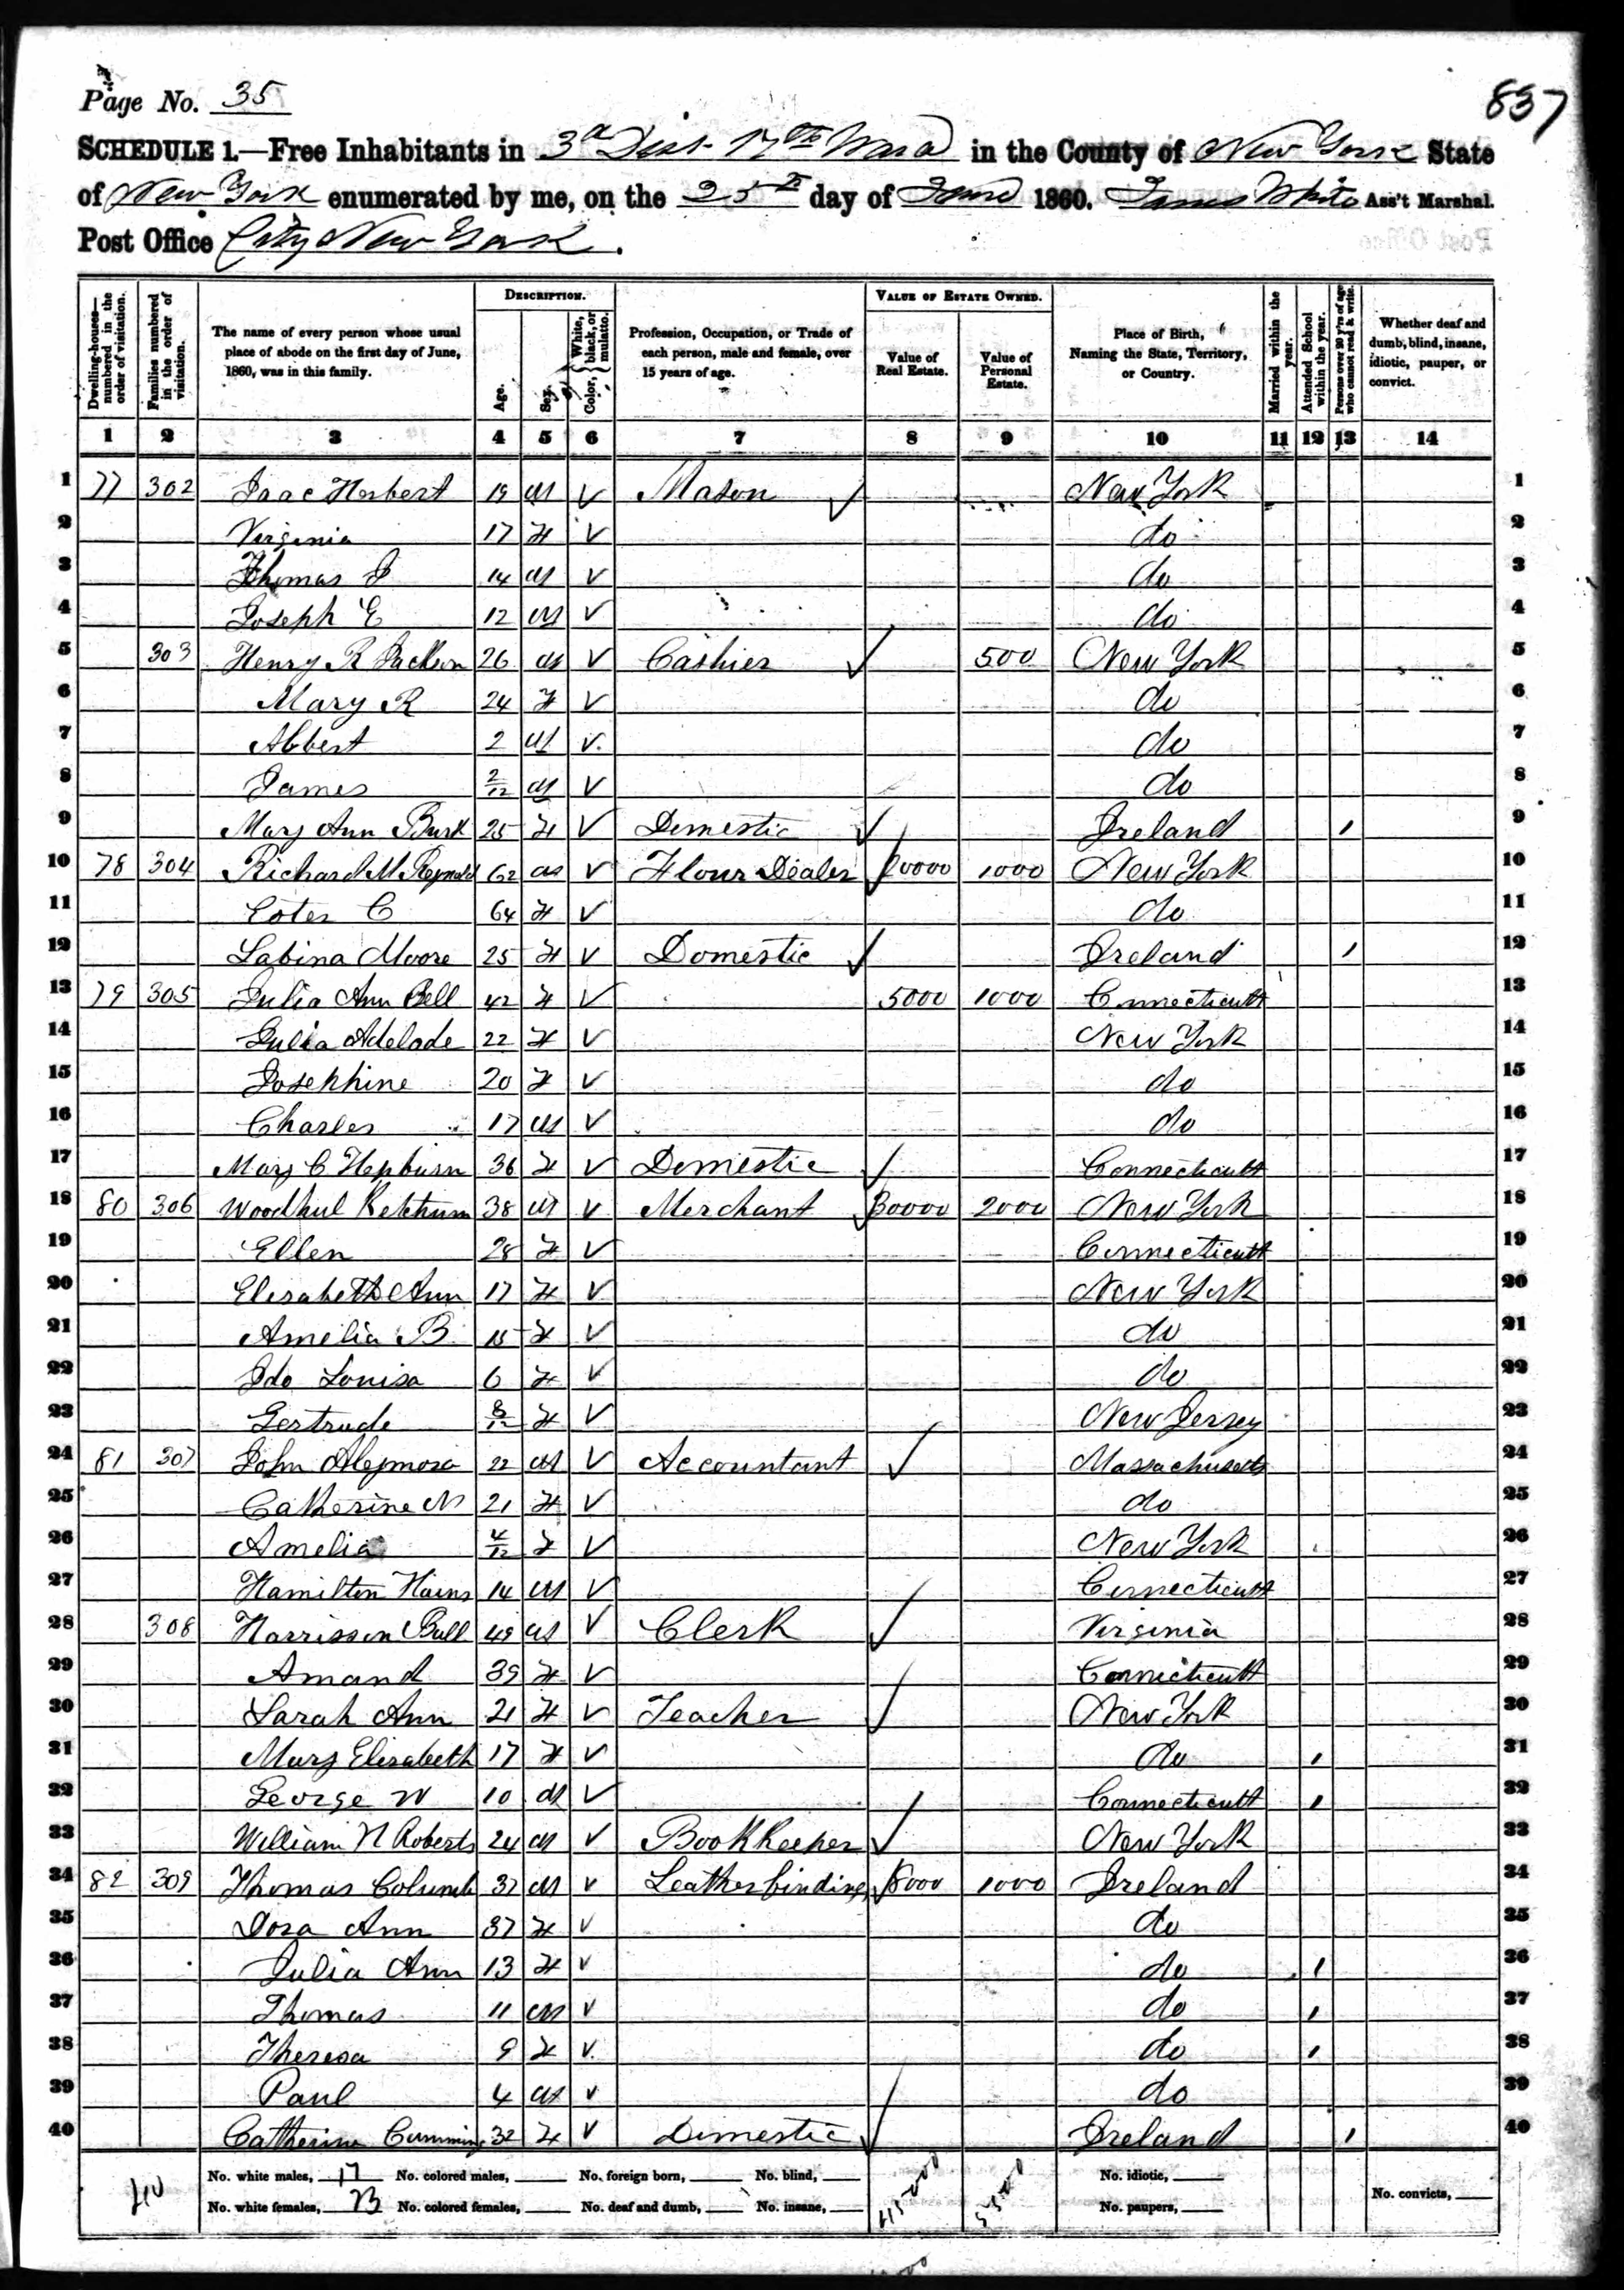 Page No. 35
837
SCHEDULE 1.—Free Inhabitants in 3d Dist 17th Ward in the County of New York State
of New York enumerated by me, on the 25th day of June 1860. James White Ass't Marshal.
Post Office City New York.
Dwelling-houses—numbered in the order of visitation.
Families numbered in the order of visitation.
The name of every person whose usual place of abode on the first day of June, 1860, was in this family.
DESCRIPTION.
Age.
Sex.
Color, White, black, or mulatto.
Profession, Occupation, or Trade of each person, male and female, over 15 years of age.
VALUE OF ESTATE OWNED.
Value of Real Estate.
Value of Personal Estate.
Place of Birth, Naming the State, Territory, or Country.
Married within the year.
Attended School within the year.
Persons over 20 y'rs of age who cannot read & write.
Whether deaf and dumb, blind, insane, idiotic, pauper, or convict.
1 2 3 4 5 6 7 8 9 10 11 12 13 14
1 77 302 Isaac Herbert 19 M ✓ Mason ✓ New York 1
2 Virginia 17 F ✓ do 2
3 Thomas J 14 M ✓ do 3
4 Joseph E 12 M ✓ do 4
5 303 Henry R Jackson 26 M ✓ Cashier ✓ 500 New York 5
6 Mary R 24 F ✓ do 6
7 Albert 2 M ✓ do 7
8 James 2/12 M ✓ do 8
9 Mary Ann Burk 25 F ✓ Domestic ✓ Ireland / 9
10 78 304 Richard M 62 M ✓ Flour Dealer ✓ 20000 1000 New York 10
11 C 64 F ✓ do 11
12 Sabina Moore 25 F ✓ Domestic ✓ Ireland / 12
13 79 305 Julia Ann Bell 42 F ✓ 5000 1000 Connecticutt 13
14 Julia Adelade 22 F ✓ New York 14
15 Josephine 20 F ✓ do 15
16 Charles 17 M ✓ do 16
17 Mary C Hepburn 36 F ✓ Domestic ✓ Connecticutt 17
18 80 306 Woodhul Ketchum 38 M ✓ Merchant ✓ 30000 2000 New York 18
19 Ellen 28 F ✓ Connecticutt 19
20 Elisabeth Ann 17 F ✓ New York 20
21 Amelia B 15 F ✓ do 21
22 Ida Louisa 6 F ✓ do 22
23 Gertrude 8/12 F ✓ New Jersey 23
24 81 307 John 22 M ✓ Accountant ✓ Massachusetts 24
25 Catherine M 21 F ✓ do 25
26 Amelia 4/12 F ✓ New York 26
27 Hamilton 14 M ✓ Connecticutt 27
28 308 Harrisson Ball 49 M ✓ Clerk ✓ Virginia 28
29 Amand 39 F ✓ Connecticutt 29
30 Sarah Ann 21 F ✓ Teacher ✓ New York 30
31 Mary Elisabeth 17 F ✓ do / 31
32 George W 10 M ✓ Connecticutt / 32
33 William H Roberts 24 M ✓ BookKeeper ✓ New York 33
34 82 309 Thomas Columb 37 M ✓ Leather binding ✓ 8000 1000 Ireland 34
35 Dora Ann 37 F ✓ do 35
36 Julia Ann 13 F ✓ do / 36
37 Thomas 11 M ✓ do / 37
38 Theresa 9 F ✓ do / 38
39 Paul 4 M ✓ do 39
40 Catherine Cumming 32 F ✓ Domestic ✓ Ireland / 40
40
No. white males, 17 No. colored males, No. foreign born, No. blind, No. idiotic,
No. white females, 23 No. colored females, No. deaf and dumb, No. insane, No. paupers, No. convicts,